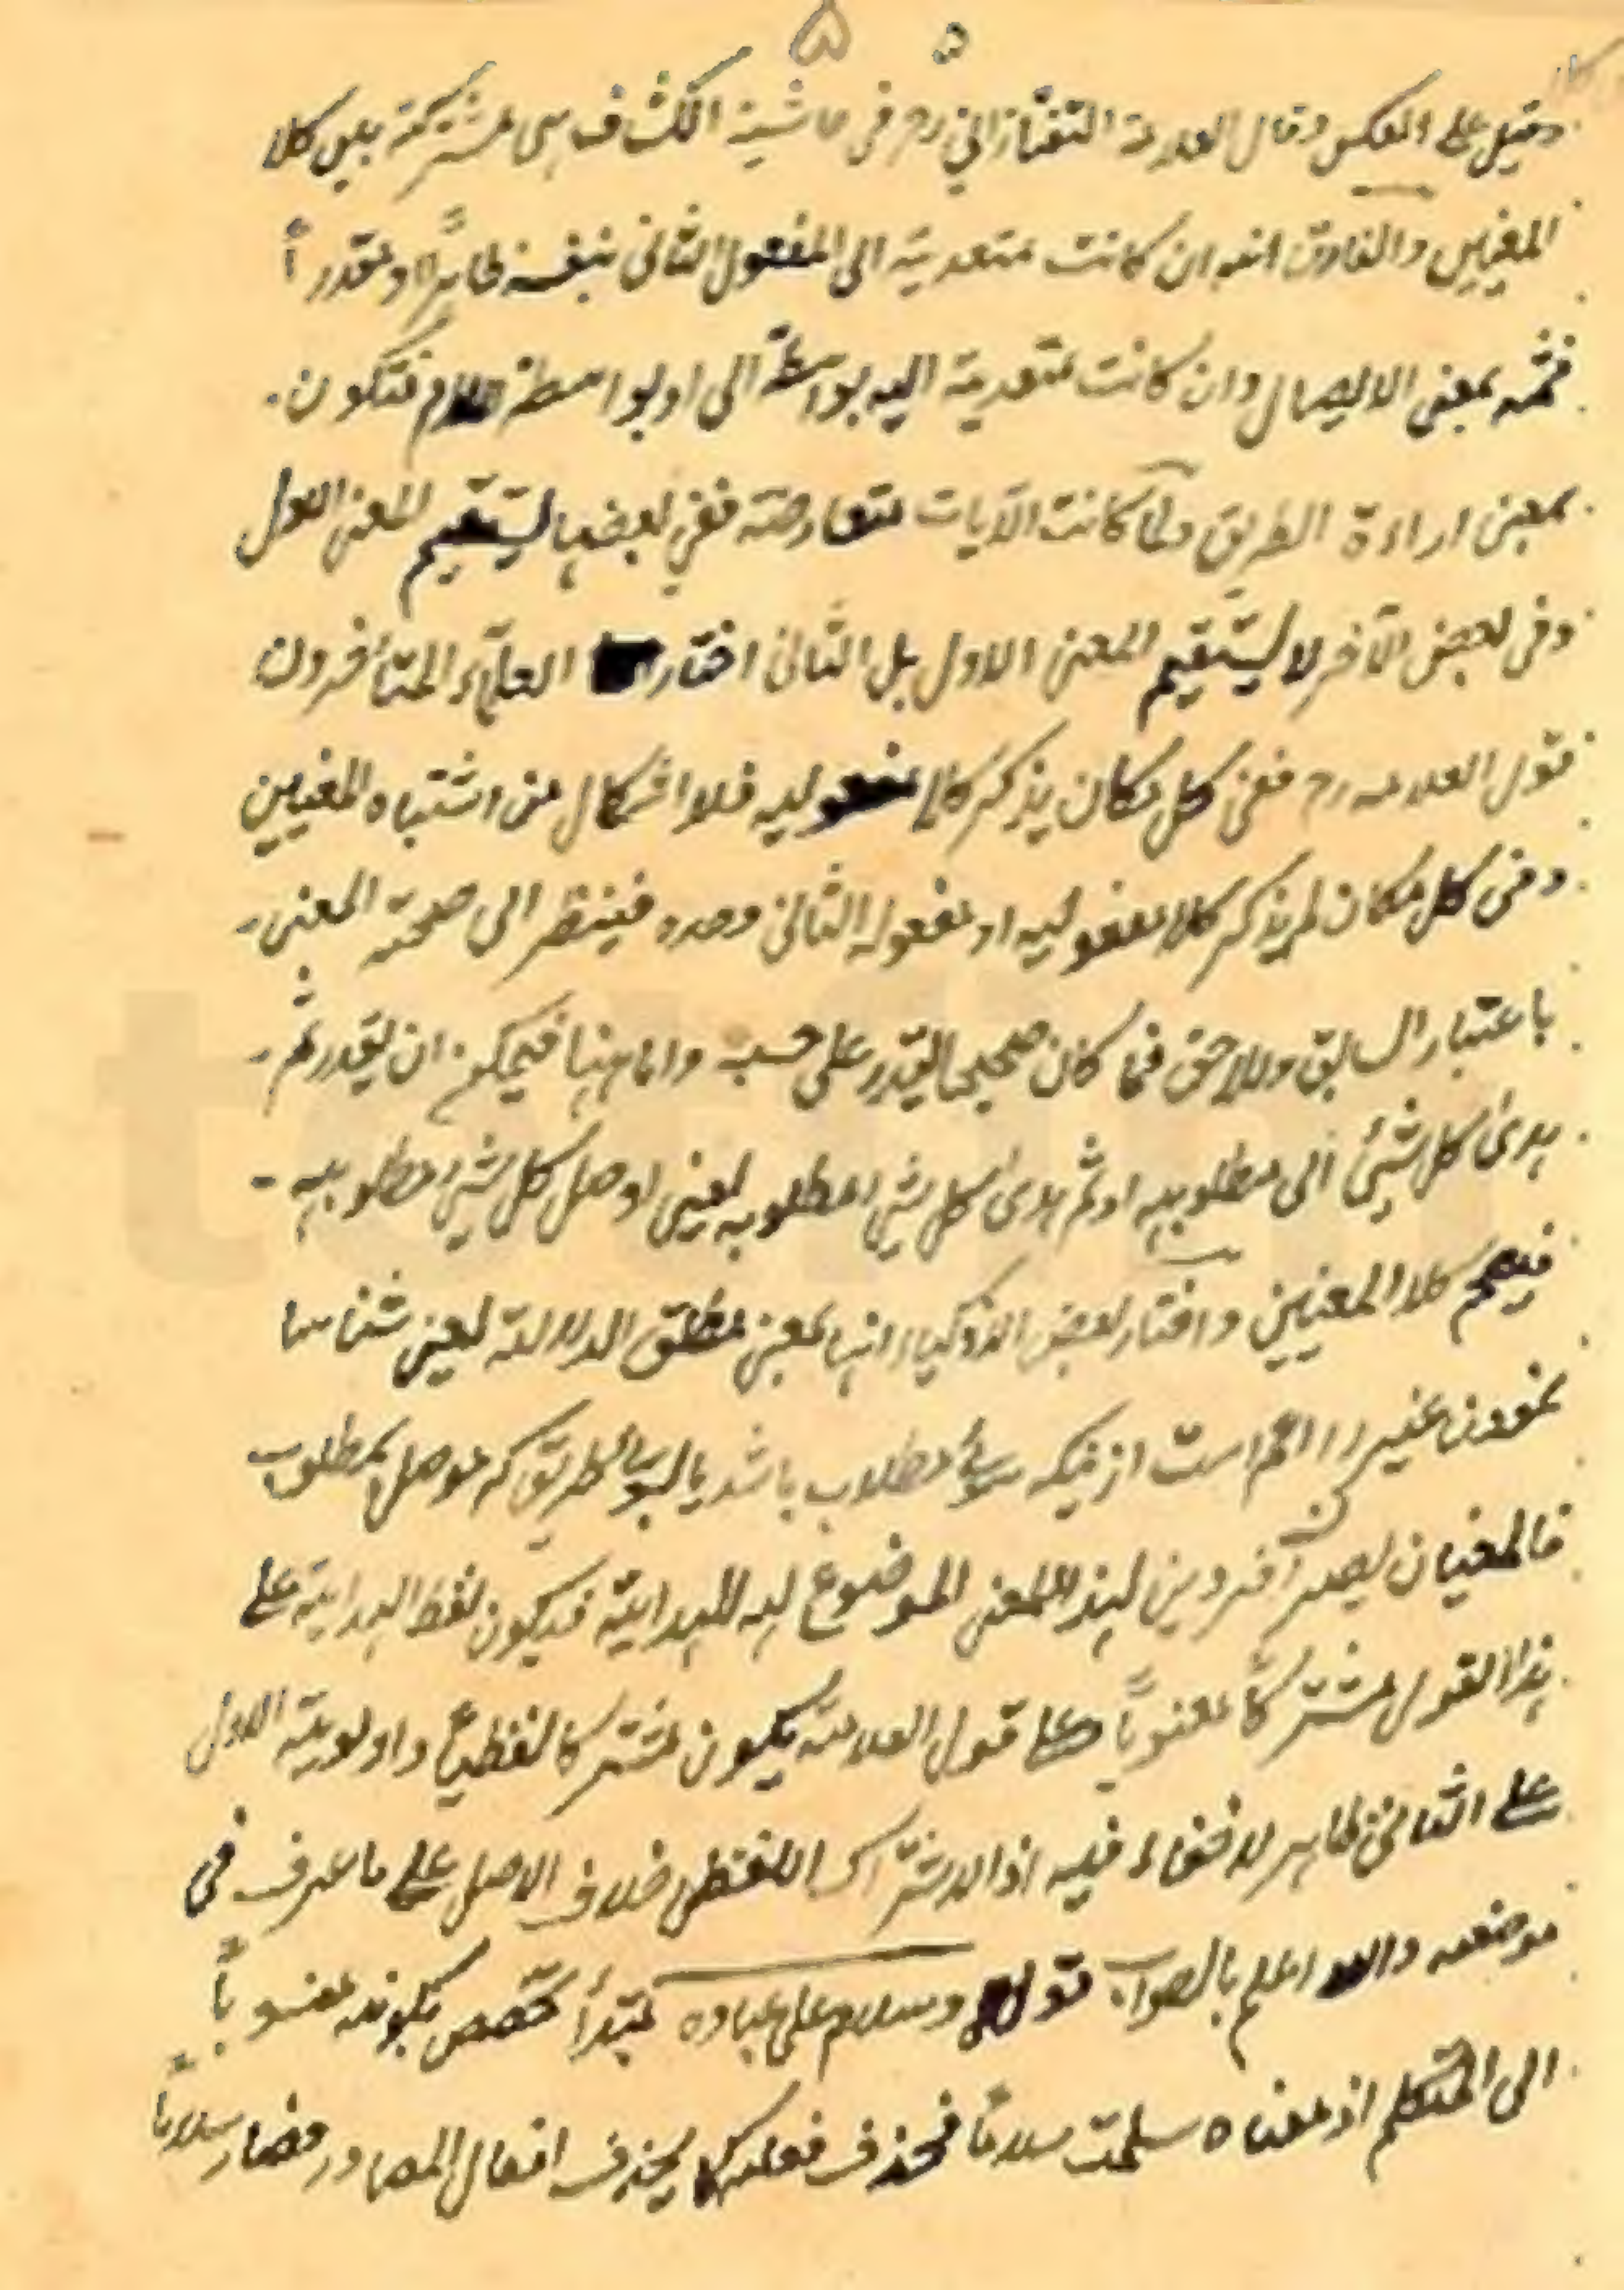 ۵
وقيل على العكس وقال العلامة التفتازاني رح في حاشية الكشاف هى مشتركة بين كلا
المعنيين والفارق انه ان كانت متعدية الى المفعول الثانى بنفسه ظاهرًا او مقدرًا
فثمه بمعنى الايصال وان كانت متعدية اليه بواسطة الى او بواسطة اللام فتكون
بمعنى اراءة الطريق ولما كانت الآيات متعارضة ففي بعضها يستقيم المعنى الاول
وفى بعض الآخر لا يستقيم المعنى الاول بل الثانى اختار العلماء المتأخرون
قول العلامه رح ففى كل مكان يذكر كلا مفعوليه فلا اشكال من اشتباه المعنيين
وفى كل مكان لم يذكر كلا مفعوليه او مفعوله الثانى وحده فينظر الى صحة المعنى
باعتبار السابق واللاحق فما كان صحيحا يقدر على حسبه واما ههنا فيمكن ان يقدر ثم
هدى كل شيئ الى مطلوبه او ثم هدى كل شئ لمطلوبه يعنى اوصل كل شئ مطلوبه
فيصح كلا المعنيين واختار بعض الاذكياء انها بمعنى مطلق الدلالة يعنى شناسا
نمودن غير را اعم است ازينكه سوئے مطلاب باشد يا بسوئے طريق كه موصل بمطلوب
فالمعنيان يصير فردين لهذا المعنى الموضوع له للهداية فيكون لفظ الهداية على
هذا القول مشتركًا معنويًا وعلى قول العلامة يكون مشتركا لفظيًا واولوية الاول
على الثانى ظاهر لا خفاء فيه اذ الاشتراك اللفظى خلاف الاصل على ما عرف فى
موضعه والله اعلم بالصواب قوله وسلام على عباده مبتدأ تخصص بكونه منسوبًا
الى المتكلم اذ معناه سلمت سلامًا فحذف فعله كما يحذف افعال المصادر فصار سلامًا